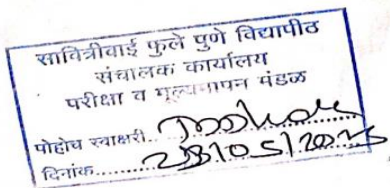 सावित्रीबाई फुले पुणे विद्यापीठ
संचालक कार्यालय
परीक्षा व मूल्यमापन मंडळ
पोहोच स्वाक्षरी..
दिनांक.... 28/05/2025